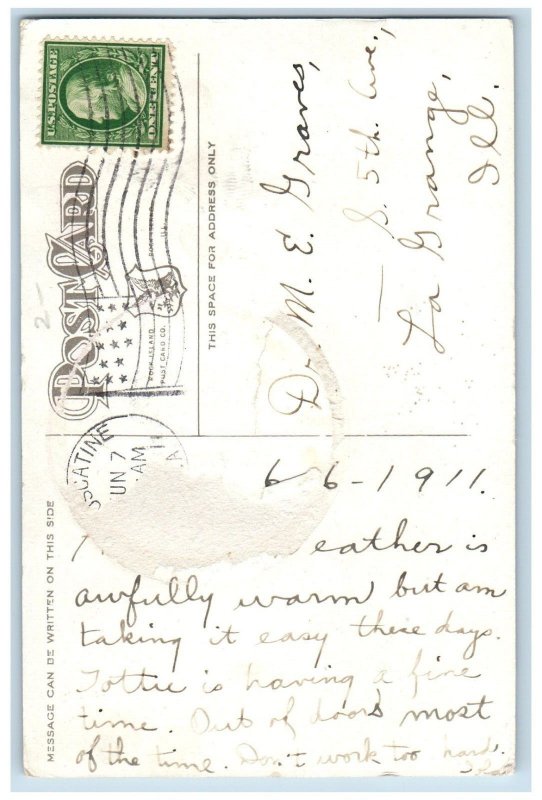 U.S. POSTAGE
ONE CENT
POST CARD
ROCK ISLAND
POST CARD CO.
ROCK ISLAND
ILL.
THIS SPACE FOR ADDRESS ONLY
MESSAGE CAN BE WRITTEN ON THIS SIDE
2-
USCATINE
UN 7
AM
Dr. M. E. Graves,
S. 5th. Ave.,
La Grange,
Ill.
6 6-1911.
eather is
awfully warm but am
taking it easy these days.
Tottie is having a fine
time. Out of doors most
of the time. Don't work too hard.